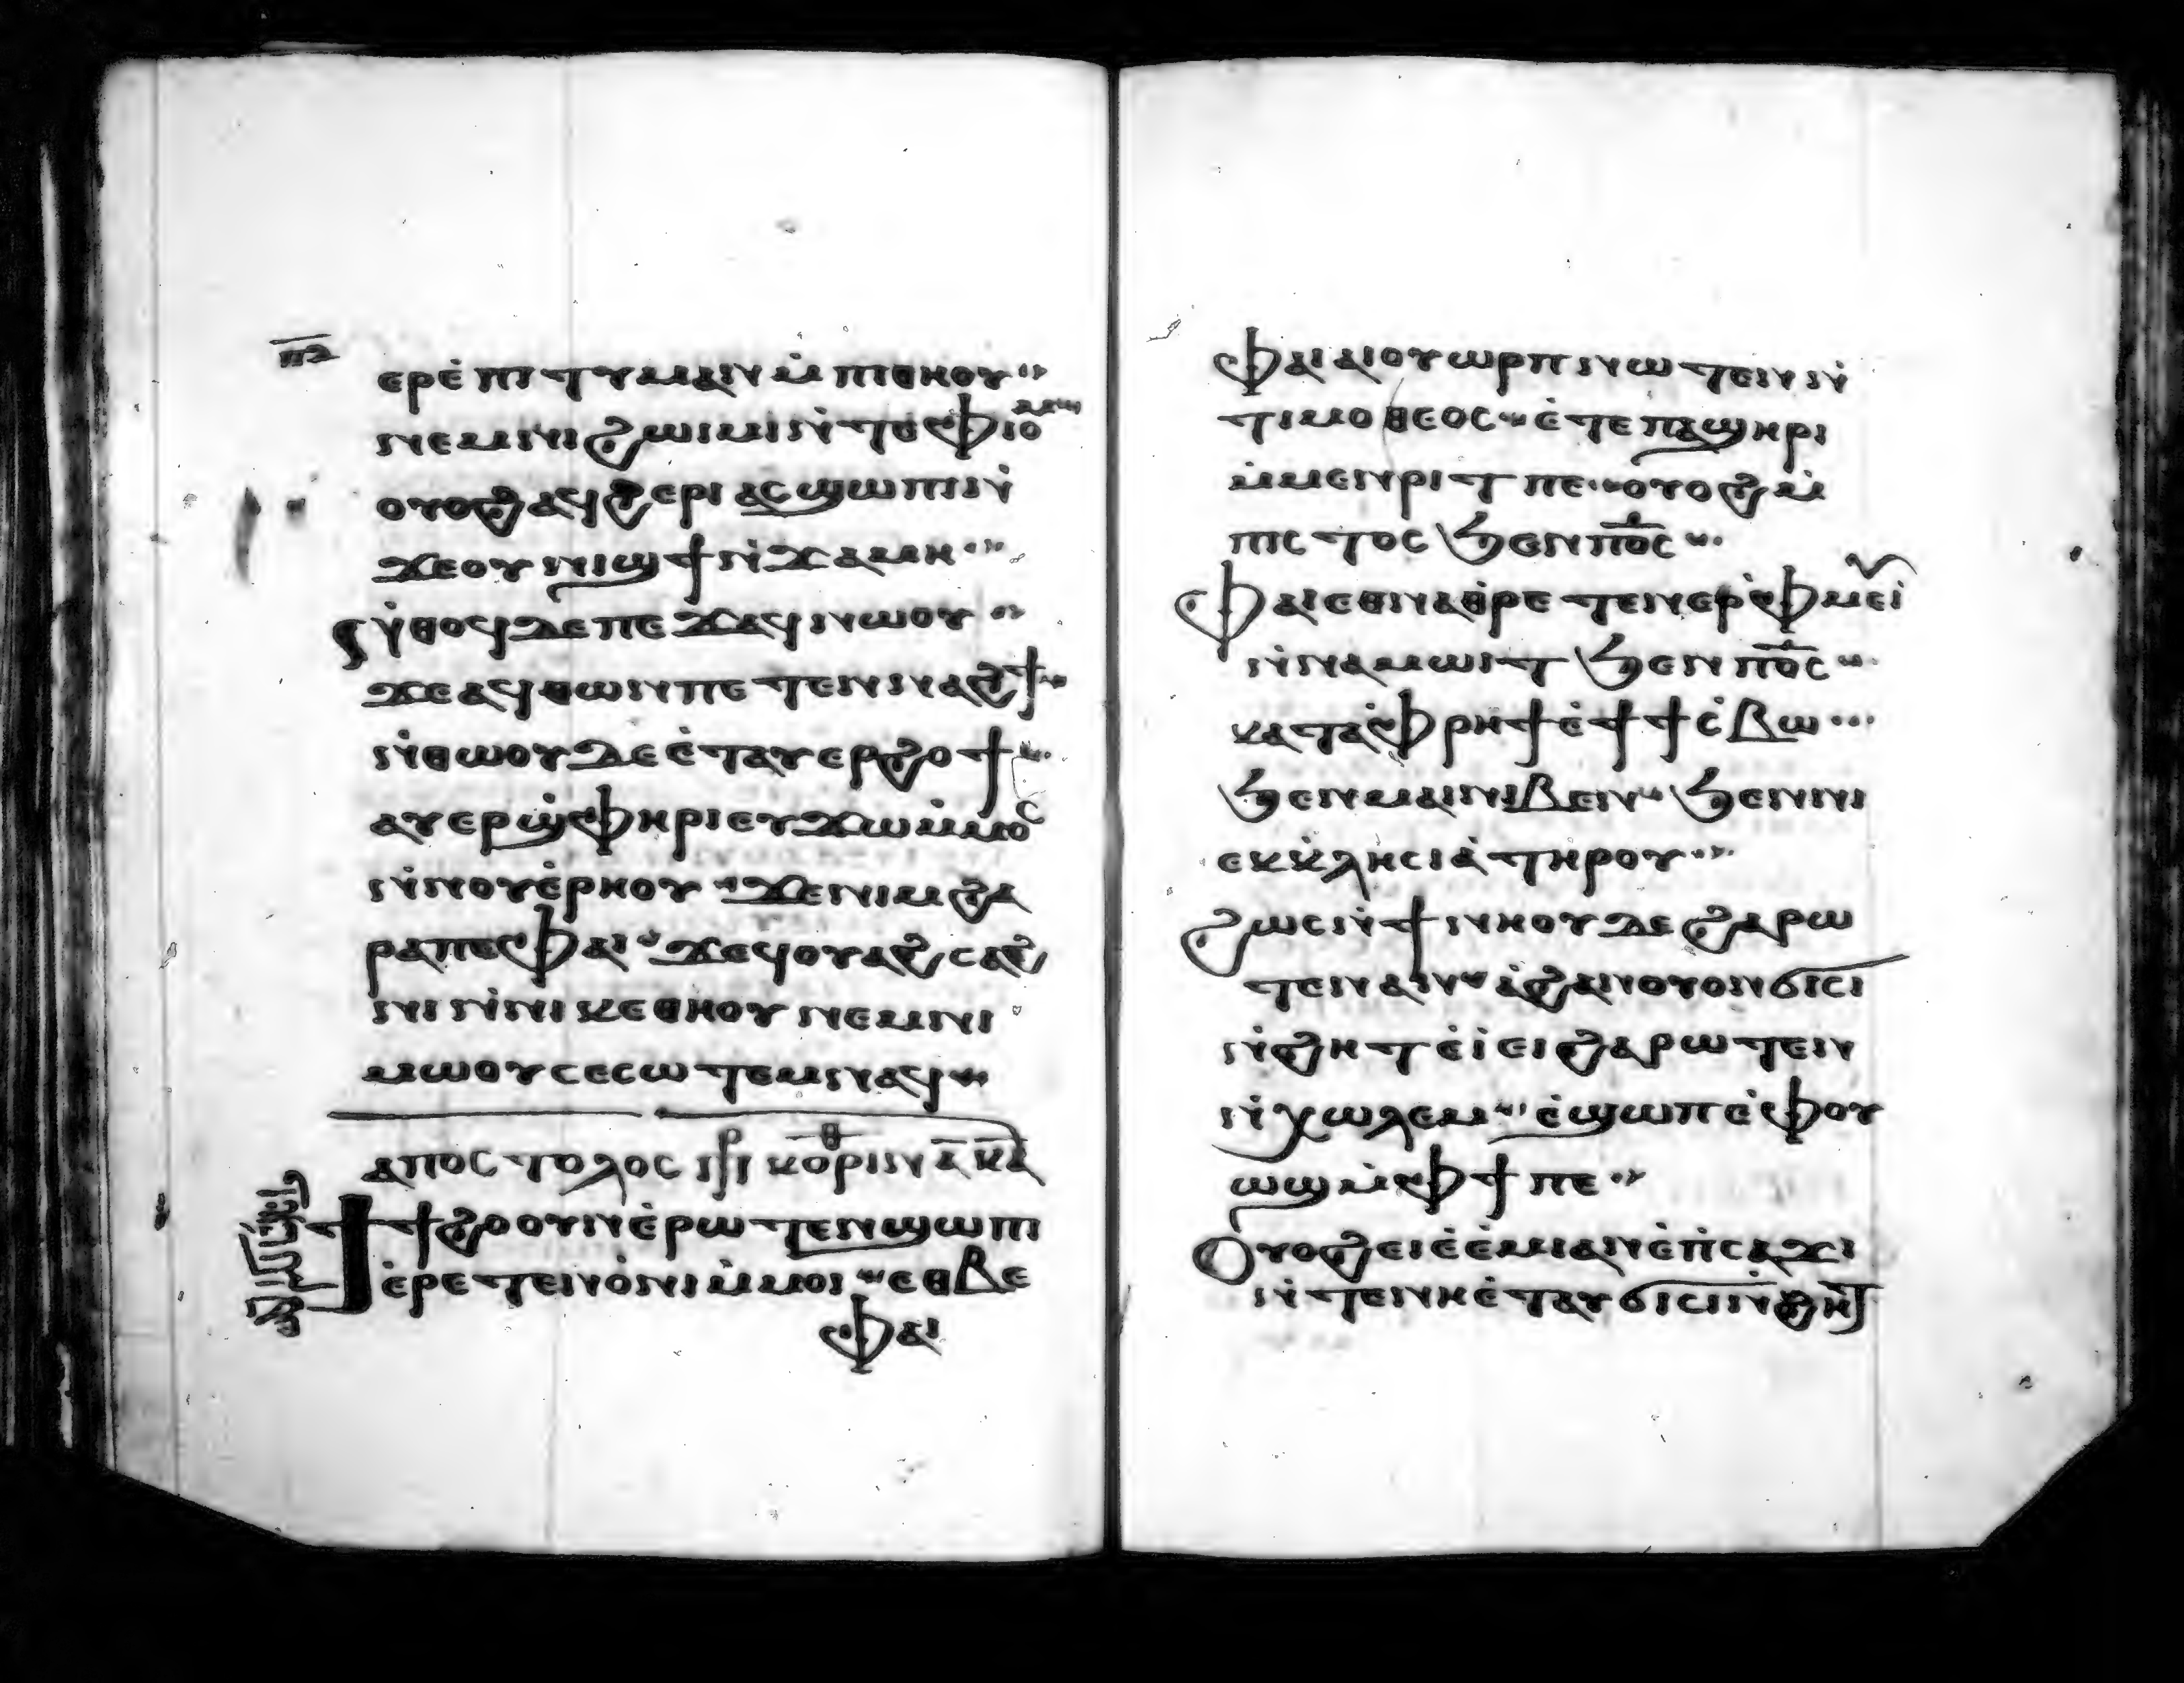 ⲡ︦ⲍ︦
ⲉⲣⲉ̇ ⲡⲓⲧⲩⲙⲁⲓⲛ ⲙ̇ⲡⲓⲑⲏⲟⲩ
ⲛⲉⲙⲛⲓϩⲱⲓⲙⲓ ⲛ̇ⲧⲉⲫⲓⲟⲙ
ⲟⲩⲟϩ ⲁϥϩⲉⲣⲓ ⲁⲥϣⲱⲡⲓ ⲛ̇
ϫⲉⲟⲩⲛⲓϣϯ ⲛ̇ϫⲁⲙⲏ
ⲛ̇ⲑⲟϥ ⲇⲉ ⲡⲉϫⲁϥ ⲛⲱⲟⲩ
ϫⲉⲁϥⲑⲱⲛ ⲡⲉⲧⲉⲛⲛⲁϩϯ
ⲛ̇ⲑⲱⲟⲩ ⲇⲉ ⲉ̇ⲧⲁⲩⲉⲣϩⲟϯ
ⲁⲩⲉⲣϣ̇ⲫⲏⲣⲓ ⲉⲩϫⲱ ⲙ̇ⲙⲟⲥ
ⲛ̇ⲛⲟⲩⲉ̇ⲣⲏⲟⲩ ϫⲉⲛⲓⲙ ϩⲁ
ⲣⲁ ⲡⲉ ⲫⲁⲓ ϫⲉϥⲟⲩⲁϩⲥⲁϩ
ⲛⲓ ⲛ̇ⲛⲓⲕⲉⲑⲏⲟⲩ ⲛⲉⲙⲛⲓ
ⲙⲱⲟⲩ ⲥⲉⲥⲱⲧⲉⲙ ⲛⲁϥ
ⲁⲡⲟⲥⲧⲟⲗⲟⲥ ⲡⲣ ⲕⲟⲣⲓⲛⲑ ⲁ̅ ⲕ̅ⲇ̅
ϯϯϩⲟ ⲟⲩⲛ ⲉ̇ⲣⲱⲧⲉⲛ ϣⲱⲡⲓ
ⲉ̇ⲣⲉⲧⲉⲛⲟ̇ⲛⲓ ⲙ̇ⲙⲟⲓ ⲉⲑⲃⲉ
ⲫⲁⲓ
ⲫⲁⲓ ⲁⲓⲟⲩⲱⲣⲡ ⲛⲱⲧⲉⲛ ⲛ̇
ⲧⲓⲙⲟⲑⲉⲟⲥ ⲉ̇ⲧⲉ ⲡⲁϣⲏⲣⲓ
ⲙ̇ⲙⲉⲛⲣⲓⲧ ⲡⲉ ⲟⲩⲟϩ ⲙ̇
ⲡⲓⲥⲧⲟⲥ ϧⲉⲛ ⲡ︦ⲟ̅ⲥ̅
ⲫⲁⲓ ⲉⲑⲛⲁⲑⲣⲉⲧⲉⲛⲉⲣⲫ̇ⲙⲉⲩⲓ̇
ⲛ̇ⲛⲁⲙⲱⲓⲧ ϧⲉⲛ ⲡ︦ⲟ̅ⲥ̅
ⲕⲁⲧⲁ ⲫ̇ⲣⲏϯ ⲉ̇ϯϯⲥ̇ⲃⲱ
ϧⲉⲛⲙⲁⲓⲛⲓⲃⲉⲛ ϧⲉⲛⲛⲓ
ⲉⲕⲕ̇ⲗⲏⲥⲓⲁ̇ ⲧⲏⲣⲟⲩ
ϩⲱⲥ ⲛ̇ϯⲛⲏⲟⲩ ⲇⲉ ϩⲁⲣⲱ
ⲧⲉⲛ ⲁⲛ ⲁ̇ϩⲁⲛⲟⲩⲟⲛ ϭⲓⲥⲓ
ⲛ̇ϩⲏⲧ ⲉ̇ⲓ̇ⲉⲓ̇ ϩⲁⲣⲱⲧⲉⲛ
ⲛ̇ⲭⲱⲗⲉⲙ ⲉ̇ϣⲱⲡ ⲉ̇ⲫⲟⲩ
ⲱϣ ⲙ̇ⲫϯ ⲡⲉ
ⲟⲩⲟϩ ⲉⲓⲉ̇ⲉ̇ⲙⲓ ⲁⲛ ⲉ̇ⲡ̇ⲥⲁϫⲓ
ⲛ̇ⲧⲉⲛⲏ ⲉ̇ⲧⲁⲩϭⲓⲥⲓ ⲛ̇ϩⲏⲧ